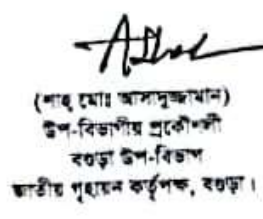 (শাহ মোঃ আসাদুজ্জামান)
উপ-বিভাগীয় প্রকৌশলী
বগুড়া উপ-বিভাগ
জাতীয় গৃহায়ন কর্তৃপক্ষ, বগুড়া।